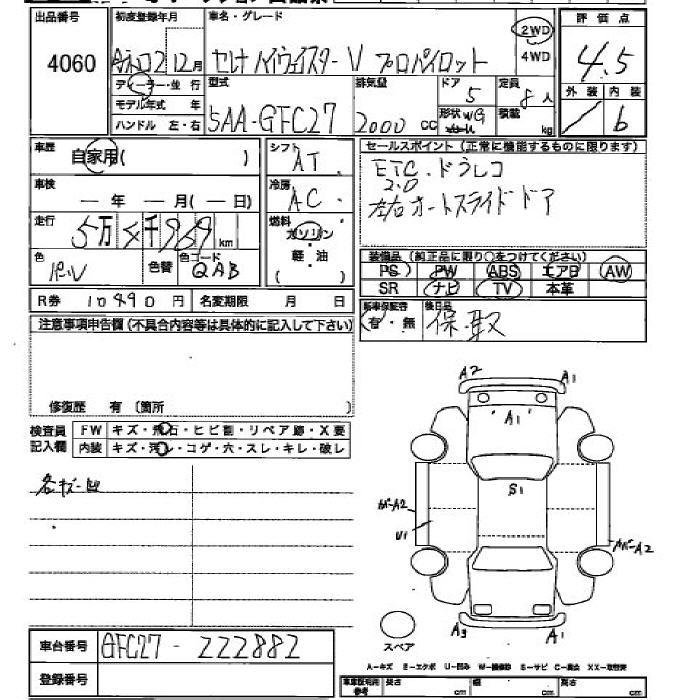 出品番号 初度登録年月 車名・グレード 2WD 評価点
4060 2 12月 セレナ ハイウェイスター V プロパイロット 4WD 4.5
ディーラー・並行 型式 排気量 ドア 定員
モデル年式 年 5AA-GFC27 2000 CC 5 8人 外装 内装
ハンドル 左・右 形状 WG 積載 kg b
車歴 自家用( ) シフト AT セールスポイント(正常に機能するものに限ります)
車検 ー年 ー月(ー日) 冷房 AC ETC・ドラレコ
2.0
走行 5万 千969 km 燃料 ガソリン 左右オートスライドドア
軽・油
( )
色 パール 色替 色コード QAB 装備品(純正品に限り○をつけてください)
PS PW ABS エアB AW
SR ナビ TV 本革
R券 10490円 名変期限 月 日 新車保証書 後日品
有・無 保・取
注意事項申告欄(不具合内容等は具体的に記入して下さい)
修復歴 有 (箇所 )
検査員 FW キズ・飛石・ヒビ割・リペア跡・X要
記入欄 内装 キズ・汚レ・コゲ・穴・スレ・キレ・破レ
各キズ・凹
A2 A1
A1
S1
カバーA2
U1
カバーA2
A3 A1
スペア
車台番号 GFC27-222882
登録番号
A-キズ E-エクボ U-凹み W-補修跡 S-サビ C-腐食 XX-取替済
車庫証明用参考 長さ cm 幅 cm 高さ cm